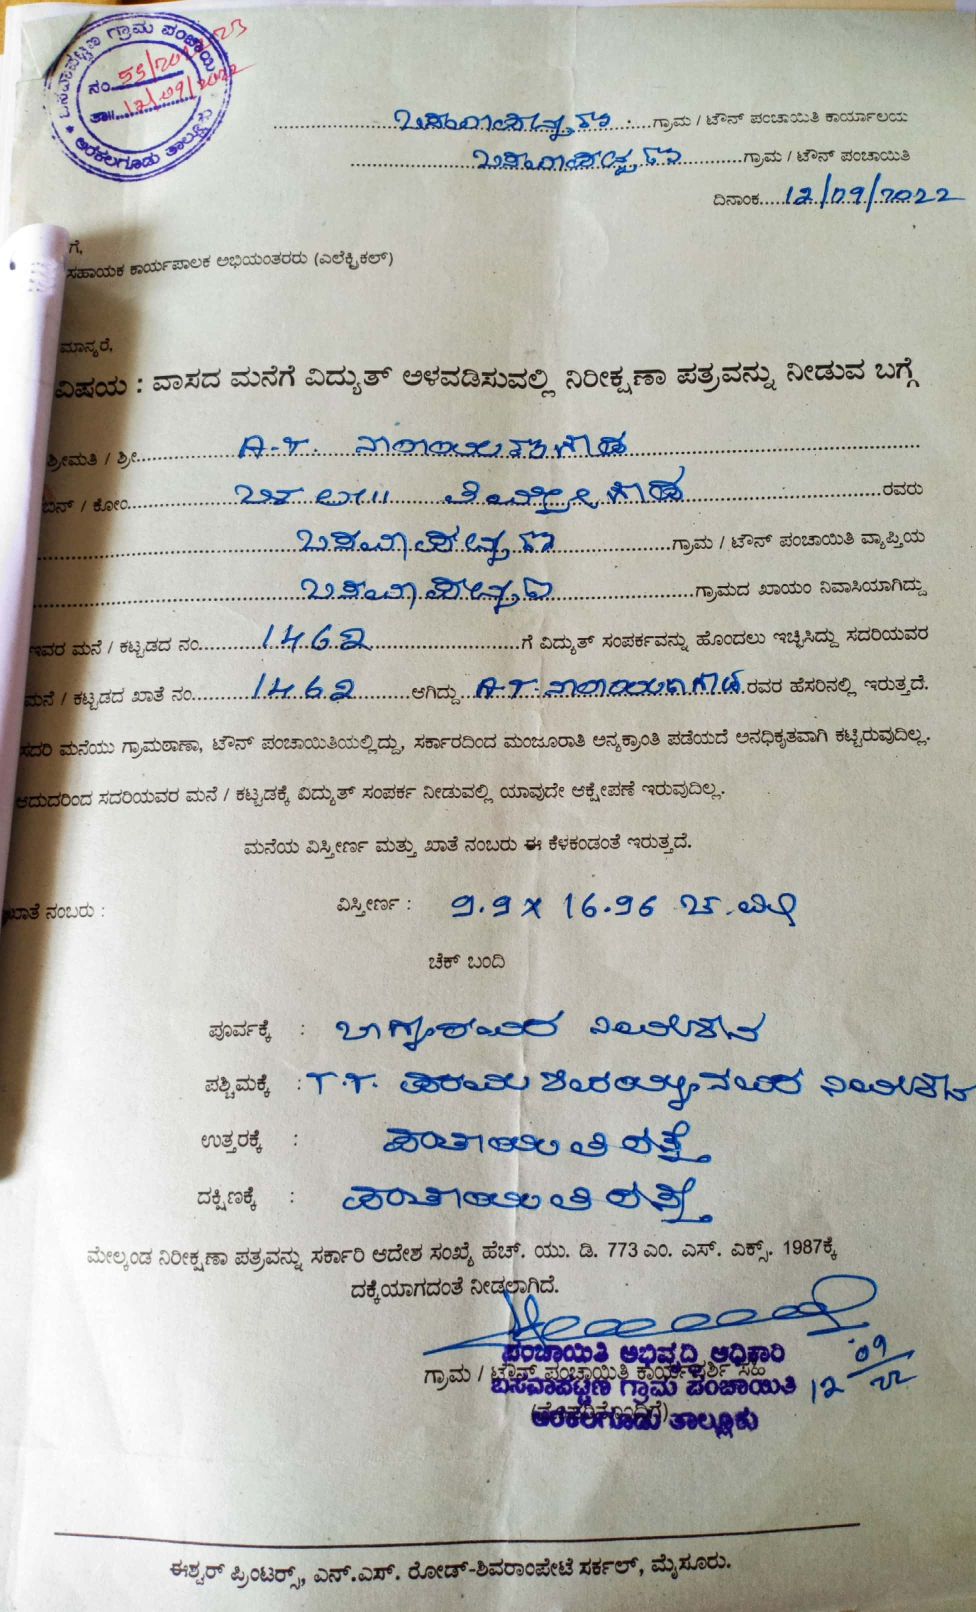 ಬಸವಾಪಟ್ಟಣ ಗ್ರಾಮ ಪಂಚಾಯಿತಿ
ನಂ 55/2022/23
ತಾ॥ 12/09/2022
* ಅರಕಲಗೂಡು ತಾಲ್ಲೂಕು *
ಬಸವಾಪಟ್ಟಣ ಗ್ರಾಮ / ಟೌನ್ ಪಂಚಾಯಿತಿ ಕಾರ್ಯಾಲಯ
ಬಸವಾಪಟ್ಟಣ ಗ್ರಾಮ / ಟೌನ್ ಪಂಚಾಯಿತಿ
ದಿನಾಂಕ 12/09/2022
ಗೆ,
ಸಹಾಯಕ ಕಾರ್ಯಪಾಲಕ ಅಭಿಯಂತರರು (ಎಲೆಕ್ಟ್ರಿಕಲ್)
ಮಾನ್ಯರೆ,
ವಿಷಯ : ವಾಸದ ಮನೆಗೆ ವಿದ್ಯುತ್ ಅಳವಡಿಸುವಲ್ಲಿ ನಿರೀಕ್ಷಣಾ ಪತ್ರವನ್ನು ನೀಡುವ ಬಗ್ಗೆ
ಶ್ರೀಮತಿ / ಶ್ರೀ A.T. ನಾರಾಯಣಗೌಡ
ಬಿನ್ / ಕೋಂ ಲೇ॥ ತಿಮ್ಮೇಗೌಡ ರವರು
ಬಸವಾಪಟ್ಟಣ ಗ್ರಾಮ / ಟೌನ್ ಪಂಚಾಯಿತಿ ವ್ಯಾಪ್ತಿಯ
ಬಸವಾಪಟ್ಟಣ ಗ್ರಾಮದ ಖಾಯಂ ನಿವಾಸಿಯಾಗಿದ್ದು
ಇವರ ಮನೆ / ಕಟ್ಟಡದ ನಂ 1462 ಗೆ ವಿದ್ಯುತ್ ಸಂಪರ್ಕವನ್ನು ಹೊಂದಲು ಇಚ್ಛಿಸಿದ್ದು ಸದರಿಯವರ
ಮನೆ / ಕಟ್ಟಡದ ಖಾತೆ ನಂ 1462 ಆಗಿದ್ದು A.T. ನಾರಾಯಣಗೌಡ ರವರ ಹೆಸರಿನಲ್ಲಿ ಇರುತ್ತದೆ.
ಸದರಿ ಮನೆಯು ಗ್ರಾಮಠಾಣಾ, ಟೌನ್ ಪಂಚಾಯಿತಿಯಲ್ಲಿದ್ದು, ಸರ್ಕಾರದಿಂದ ಮಂಜೂರಾತಿ ಅನ್ಯಕ್ರಾಂತಿ ಪಡೆಯದೆ ಅನಧಿಕೃತವಾಗಿ ಕಟ್ಟಿರುವುದಿಲ್ಲ.
ಆದುದರಿಂದ ಸದರಿಯವರ ಮನೆ / ಕಟ್ಟಡಕ್ಕೆ ವಿದ್ಯುತ್ ಸಂಪರ್ಕ ನೀಡುವಲ್ಲಿ ಯಾವುದೇ ಆಕ್ಷೇಪಣೆ ಇರುವುದಿಲ್ಲ.
ಮನೆಯ ವಿಸ್ತೀರ್ಣ ಮತ್ತು ಖಾತೆ ನಂಬರು ಈ ಕೆಳಕಂಡಂತೆ ಇರುತ್ತದೆ.
ಖಾತೆ ನಂಬರು : ವಿಸ್ತೀರ್ಣ : 9.9 x 16.96 ಚ.ಮೀ
ಚೆಕ್ ಬಂದಿ
ಪೂರ್ವಕ್ಕೆ : ಭಾಗ್ಯಂರವರ ನಿವೇಶನ
ಪಶ್ಚಿಮಕ್ಕೆ : T.T. ನವರ ನಿವೇಶನ
ಉತ್ತರಕ್ಕೆ : ಪಂಚಾಯಿತಿ ರಸ್ತೆ
ದಕ್ಷಿಣಕ್ಕೆ : ಪಂಚಾಯಿತಿ ರಸ್ತೆ
ಮೇಲ್ಕಂಡ ನಿರೀಕ್ಷಣಾ ಪತ್ರವನ್ನು ಸರ್ಕಾರಿ ಆದೇಶ ಸಂಖ್ಯೆ ಹೆಚ್. ಯು. ಡಿ. 773 ಎಂ. ಎಸ್. ಎಕ್ಸ್. 1987ಕ್ಕೆ
ದಕ್ಕೆಯಾಗದಂತೆ ನೀಡಲಾಗಿದೆ.
ಪಂಚಾಯಿತಿ ಅಭಿವೃದ್ಧಿ ಅಧಿಕಾರಿ
ಗ್ರಾಮ / ಟೌನ್ ಪಂಚಾಯಿತಿ ಕಾರ್ಯದರ್ಶಿ ಸಹಿ
ಬಸವಾಪಟ್ಟಣ ಗ್ರಾಮ ಪಂಚಾಯಿತಿ
ಅರಕಲಗೂಡು ತಾಲ್ಲೂಕು
12/09/22
ಈಶ್ವರ್ ಪ್ರಿಂಟರ್ಸ್, ಎನ್.ಎಸ್. ರೋಡ್-ಶಿವರಾಂಪೇಟೆ ಸರ್ಕಲ್, ಮೈಸೂರು.